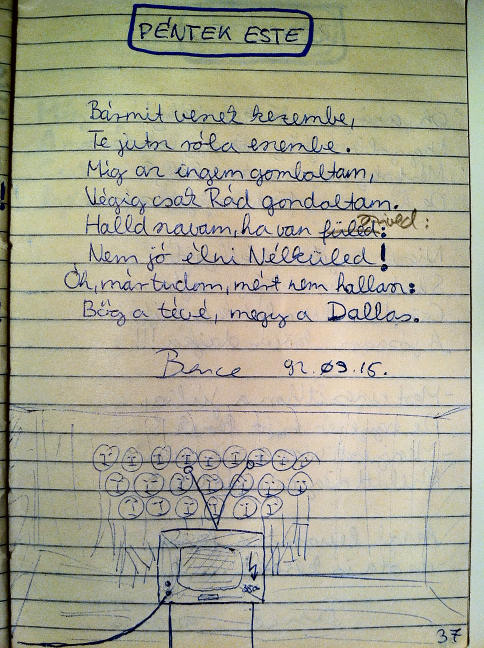 PÉNTEK ESTE
Bármit veszek kezembe,
Te jutsz róla eszembe.
Míg az ingem gomboltam,
Végig csak Rád gondoltam.
Halld szavam, ha van füled: szíved:
Nem jó élni Nélküled!
Óh, már tudom, mért nem hallasz:
Bőg a tévé, megy a Dallas.
Bence 92.09.16.
37